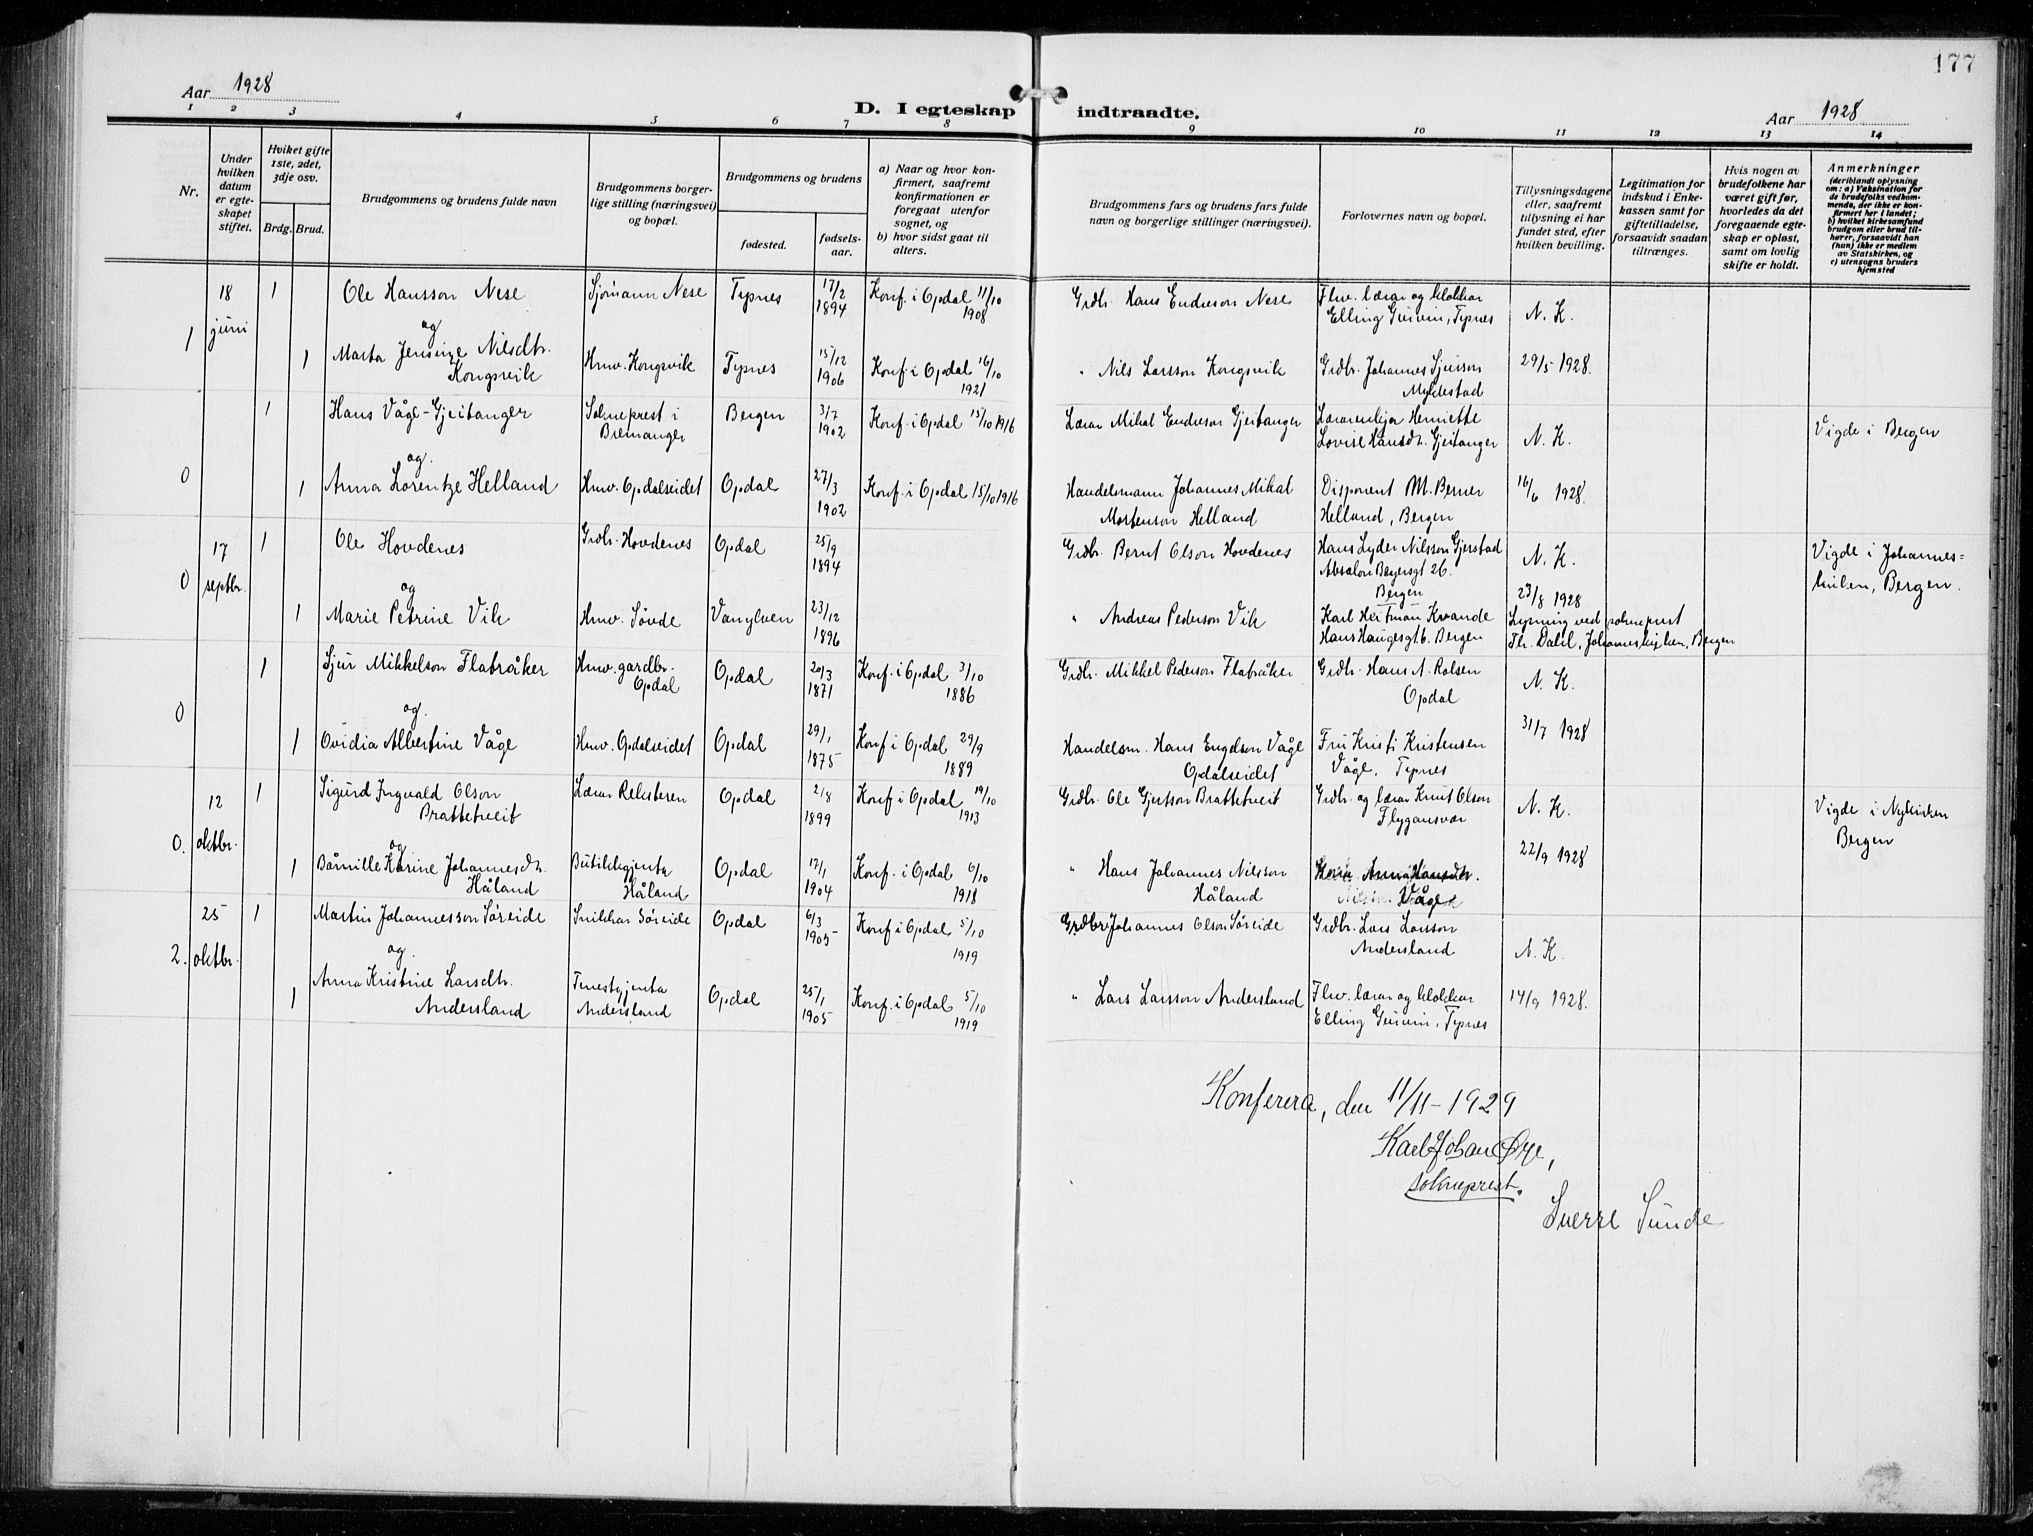 177
Aar 1928
D. I egteskap indtraadte.
Aar 1928
1 2 3 4 5 6 7 8 9 10 11 12 13 14
Nr.
Under hvilken datum er egteskapet stiftet.
Hviket gifte 1ste, 2det, 3dje osv.
Brdg. Brud.
Brudgommens og brudens fulde navn
Brudgommens borgerlige stilling (næringsvei) og bopæl.
Brudgommens og brudens
fødested.
fødselsaar.
a) Naar og hvor konfirmert, saafremt konfirmationen er foregaat utenfor sognet, og
b) hvor sidst gaat til alters.
Brudgommens fars og brudens fars fulde navn og borgerlige stillinger (næringsvei).
Forlovernes navn og bopæl.
Tillysningsdagene eller, saafremt tillysning ei har fundet sted, efter hvilken bevilling.
Legitimation for indskud i Enkekassen samt for giftetilladelse, forsaavidt saadan tiltrænges.
Hvis nogen av brudefolkene har været gift før, hvorledes da det foregaaende egteskap er opløst, samt om lovlig skifte er holdt.
Anmerkninger
(deriblandt oplysning om: a) Vaksination for de brudefolks vedkommende, der ikke er konfirmert her i landet; b) hvilket kirkesamfund brudgom eller brud tilhører, forsaavidt han (hun) ikke er medlem av Statskirken, og c) utensogns bruders hjemsted
1 18 juni 1 Ole Hansson Nese Sjømann Nese Tysnes 17/2 1894 Konf. i Opdal 11/10 1908 Grdbr. Hans Endreson Nese Fhv. lærar og klokkar Elling Gurvin, Tysnes N. K.
og
1 Marta Jensine Nilsdtr. Kongsvik Hmv. Kongsvik Tysnes 15/12 1906 Konf. i Opdal 16/10 1921 " Nils Larsson Kongsvik Grdbr. Johannes Sjursson Myldestad 29/5 1928.
0 1 Hans Våge-Gjeitanger Sokneprest i Bremanger Bergen 3/7 1902 Konf. i Opdal 15/10 1916 Lærar Mikal Endreson Gjeitanger Lærarenkja Henriette Lovise Hansdtr. Gjeitanger N. K. Vigde i Bergen
og.
1 Anna Lorentze Helland Hmv. Opdalseidet Opdal 27/3 1902 Konf. i Opdal 15/10 1916 Handelsmann Johannes Mikal Mortenson Helland Disponent M. Berner Helland, Bergen 16/6 1928.
0 17 septbr. 1 Ole Hovdenes Grdbr. Hovdenes Opdal 25/9 1894 Grdbr. Bernt Olson Hovdenes Hans Lyder Nilsson Gjerstad Absalon Beyersgt 26. Bergen N. K. Vigde i Johanneskirken, Bergen.
og
1 Marie Petrine Vik Hmv. Søvde Vanylven 23/12 1896 " Andreas Pederson Vik Karl Herman Kvande Hans Haugesgt 6. Bergen 23/8 1928 Lysning ved sokneprest Th. Dahl, Johanneskirken, Bergen
0 1 Sjur Mikkelson Flatråker Hmv. gardbr. Opdal Opdal 20/3 1871 Konf. i Opdal 3/10 1886 Grdbr. Mikkel Pederson Flatråker Grdbr. Hans A. Rolsen Opdal N. K.
og.
1 Ovidia Albertine Våge Hmv. Opdalseidet Opdal 29/1 1875 Konf. i Opdal 29/9 1889 Handelsm. Hans Engelson Våge Opdalseidet Fru Kristi Kristensen Våge, Tysnes 31/7 1928
0. 12 oktbr. 1 Sigurd Ingvald Olson Brattetveit Lærar Reksteren Opdal 2/8 1899 Konf. i Opdal 19/10 1913 Grdbr. Ole Gjertson Brattetveit Grdbr. og lærar Knut Olson Flygansvær N. K. Vigde i Nykirken Bergen
og
1 Bårnille Karine Johannesdtr. Håland Butikkgjenta Håland Opdal 17/1 1904 Konf. i Opdal 6/10 1918 " Hans Johannes Nilsson Håland Anna Hansdtr. Våge 22/9 1928
2. 25 oktbr. 1 Martin Johannesson Søreide Snikkar Søreide Opdal 6/3 1905 Konf. i Opdal 5/10 1919 Grdbr. Johannes Olson Søreide Grdbr. Lars Larsson Andersland N. K.
og.
1 Anna Kristine Larsdtr. Andersland Tenestgjenta Andersland Opdal 25/1 1905 Konf. i Opdal 5/10 1919 " Lars Larsson Andersland Fhv. lærar og klokkar Elling Gurvin, Tysnes 14/9 1928.
Konferera, den 11/11-1929
Karl Johan Øye,
sokneprest.
Sverre Sunde